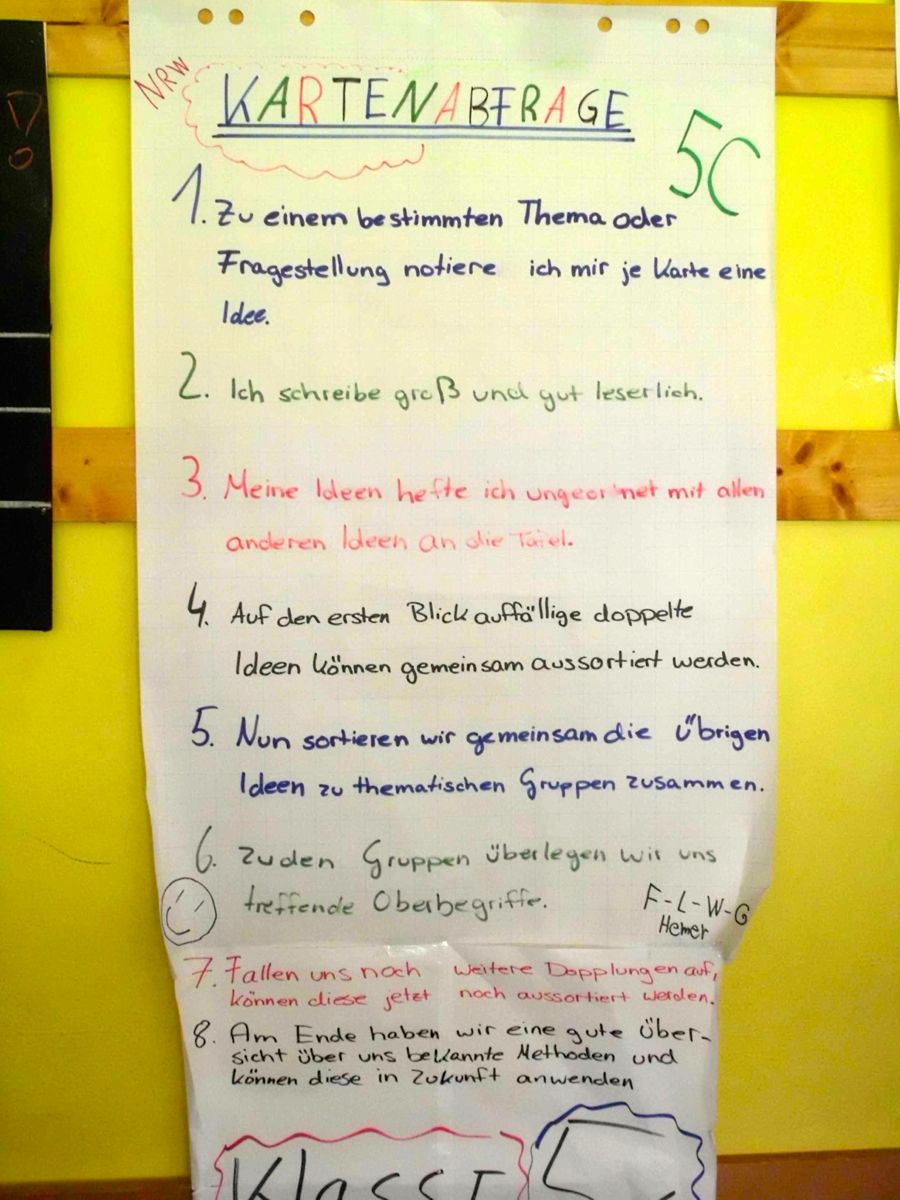 NRW
KARTENABFRAGE
5C
1. Zu einem bestimmten Thema oder
Fragestellung notiere ich mir je Karte eine
Idee.
2. Ich schreibe groß und gut leserlich.
3. Meine Ideen hefte ich ungeordnet mit allen
anderen Ideen an die Tafel.
4. Auf den ersten Blick auffällige doppelte
Ideen können gemeinsam aussortiert werden.
5. Nun sortieren wir gemeinsam die übrigen
Ideen zu thematischen Gruppen zusammen.
6. Zu den Gruppen überlegen wir uns
treffende Oberbegriffe.
F-L-W-G
Hemer
7. Fallen uns noch weitere Dopplungen auf,
können diese jetzt noch aussortiert werden.
8. Am Ende haben wir eine gute Über-
sicht über uns bekannte Methoden und
können diese in Zukunft anwenden